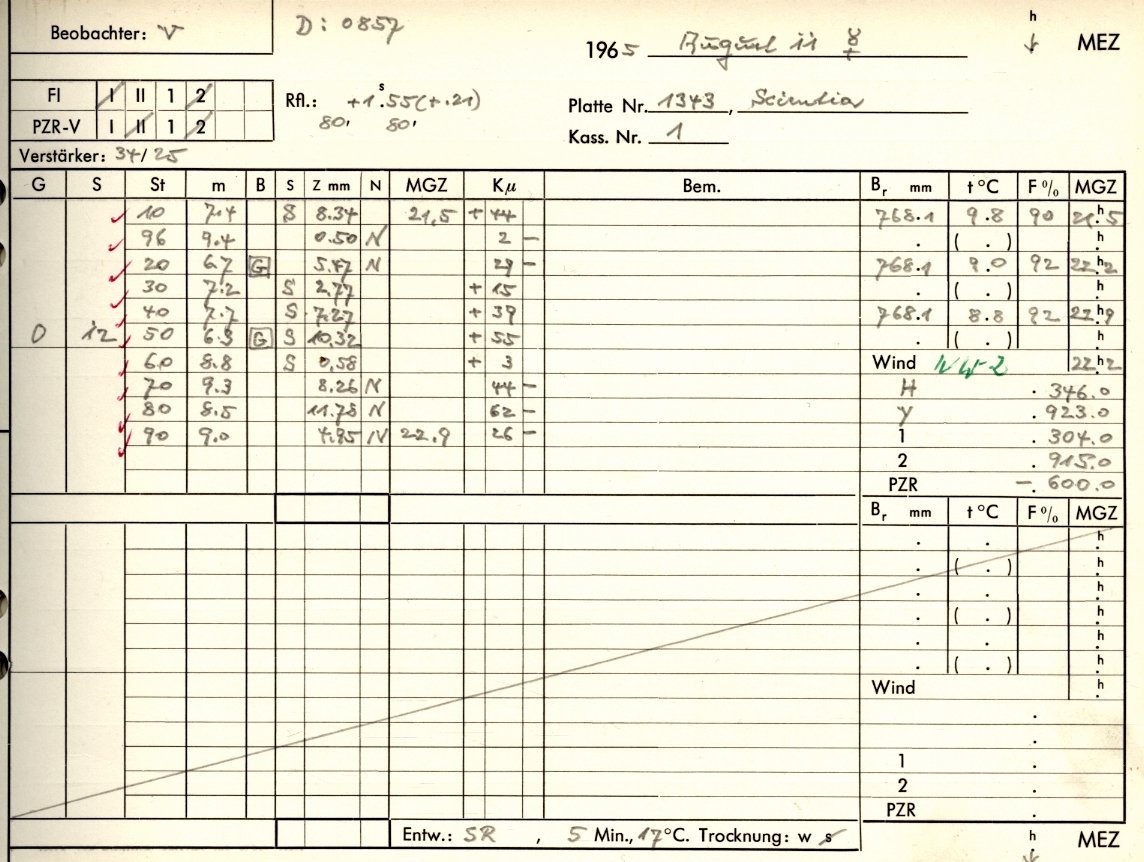 Beobachter: V D: 0857 h MEZ
1965 August 11 ☿
FI I II 1 2 Rfl.: +1ˢ.55(+.21)
80, 80,
Platte Nr. 1343, Scientia
PZR-V I II 1 2
Kass. Nr. 1
Verstärker: 34/25
G S St m B S Z mm N MGZ Kμ Bem. Br mm t°C F% MGZ
10 7.4 S 8.34 21,5 + 44 768.1 9.8 90 21ʰ.5
96 9.4 0.50 N 2 – . ( . ) h.
20 6.7 G 5.47 N 29 – 768.1 9.0 92 22ʰ.2
30 7.2 S 2.77 + 15 . ( . ) h.
40 7.7 S 7.27 + 39 768.1 8.8 92 22ʰ.9
0 12 50 6.3 G S 10.32 + 55 . ( . ) h.
60 8.8 S 0.58 + 3 Wind NW-2 22ʰ.2
70 9.3 8.26 N 44 – H . 346.0
80 8.5 11.78 N 62 – Y . 923.0
90 9.0 4.95 N 22.9 26 – 1 . 304.0
2 . 915.0
PZR –. 600.0
Br mm t°C F% MGZ
. . h.
. ( . ) h.
. . h.
. ( . ) h.
. . h.
. ( . ) h.
Wind h.
.
.
1 .
2 .
PZR .
Entw.: SR , 5 Min., 17°C. Trocknung: w s h MEZ